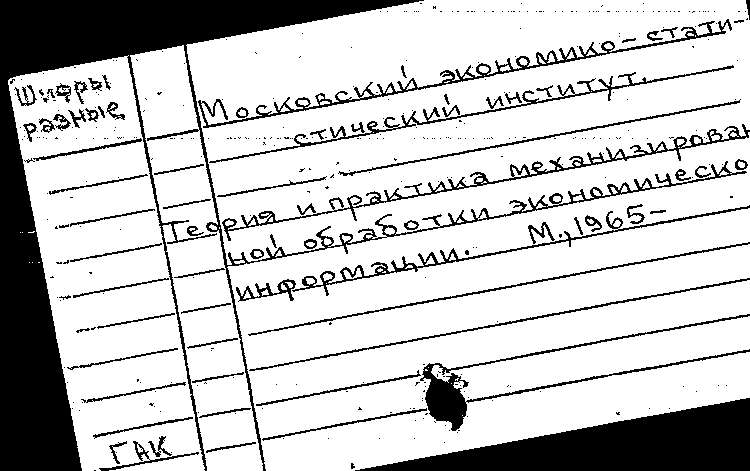 Шифры
разные
Московский экономико-стати-
стический институт.
Теория и практика механизирован
ной обработки экономическо
информации. М., 1965-
ГАК